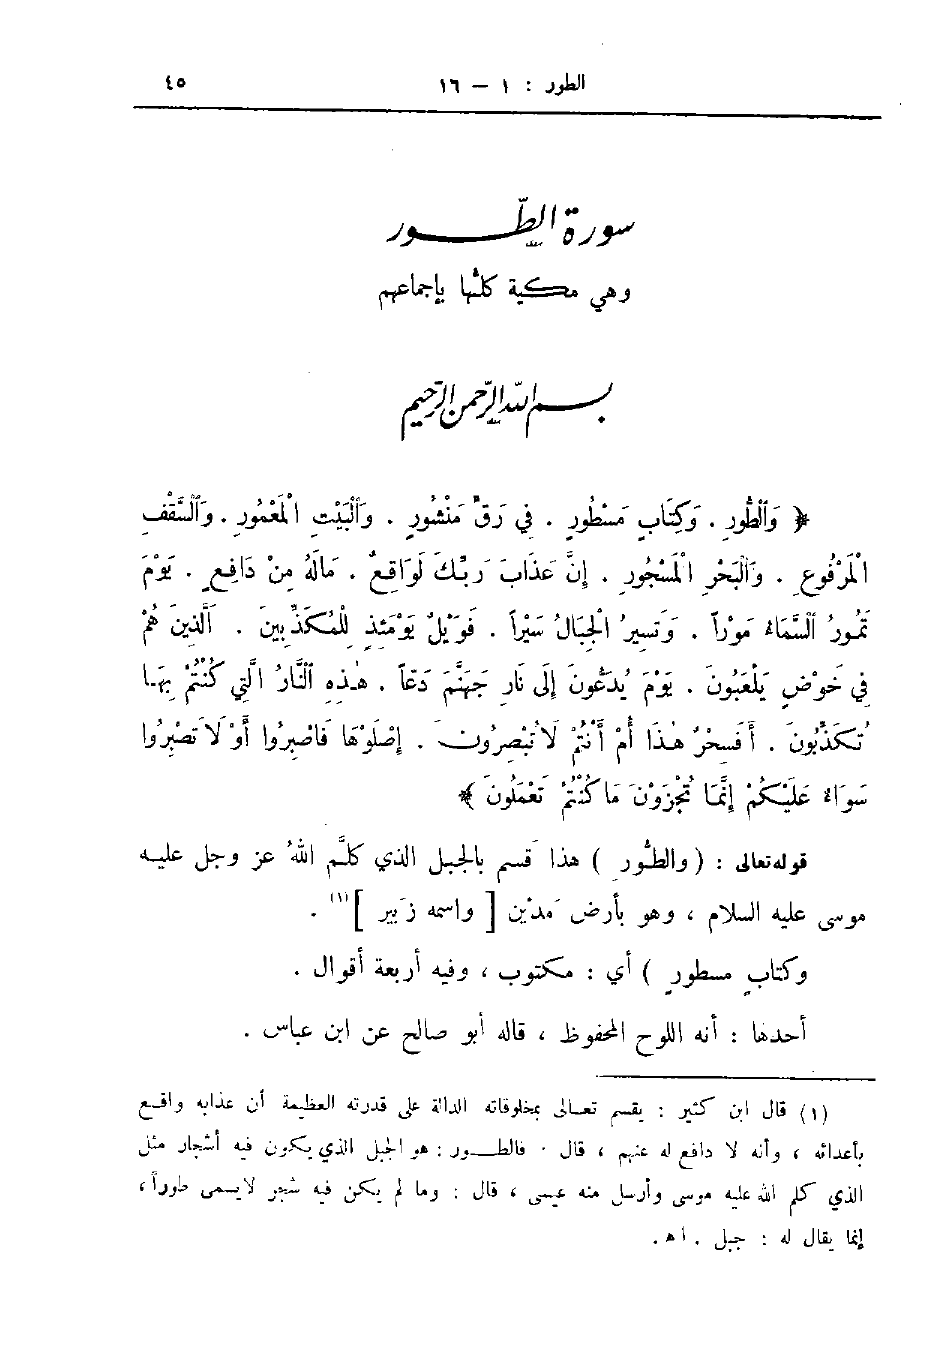 الطور : ١ — ١٦
٤٥
سورة الطّور
وهي مكية كلُّها بإجماعهم
بسم الله الرّحمن الرّحيم
﴿ وَٱلطُّورِ . وَكِتَابٍ مَسْطُورٍ . فِي رَقٍّ مَنْشُورٍ . وَٱلْبَيْتِ الْمَعْمُورِ . وَٱلسَّقْفِ
الْمَرْفُوعِ . وَٱلْبَحْرِ الْمَسْجُورِ . إِنَّ عَذَابَ رَبِّكَ لَوَاقِعٌ . مَالَهُ مِنْ دَافِعٍ . يَوْمَ
تَمُورُ ٱلسَّمَاءُ مَوْراً . وَتَسِيرُ الْجِبَالُ سَيْراً . فَوَيْلٌ يَوْمَئِذٍ لِلْمُكَذِّبِينَ . الَّذِينَ هُمْ
فِي خَوْضٍ يَلْعَبُونَ . يَوْمَ يُدَعُّونَ إِلَى نَارِ جَهَنَّمَ دَعّاً . هٰذِهِ ٱلنَّارُ الَّتِي كُنْتُمْ بِهَا
تُكَذِّبُونَ . أَفَسِحْرٌ هٰذَا أَمْ أَنْتُمْ لَا تُبْصِرُونَ . إِصْلَوْهَا فَاصْبِرُوا أَوْ لَا تَصْبِرُوا
سَوَاءٌ عَلَيْكُمْ إِنَّمَا تُجْزَوْنَ مَا كُنْتُمْ تَعْمَلُونَ ﴾
قوله تعالى : ( والطُّور ) هذا قَسم بالجبل الذي كلَّم اللهُ عز وجل عليه
موسى عليه السلام ، وهو بأرض مَدْيَن [ واسمه زَبير ](١) .
وكتابٍ مسطورٍ ) أي : مكتوب ، وفيه أربعة أقوال .
أحدها : أنه اللوح المحفوظ ، قاله أبو صالح عن ابن عباس .
(١) قال ابن كثير : يقسم تعالى بمخلوقاته الدالة على قدرته العظيمة أن عذابه واقع
بأعدائه ، وأنه لا دافع له عنهم ، قال . فالطور : هو الجبل الذي يكون فيه أشجار مثل
الذي كلم الله عليه موسى وأرسل منه عيسى ، قال : وما لم يكن فيه شجر لا يسمى طوراً ،
إنما يقال له : جبل . اه .